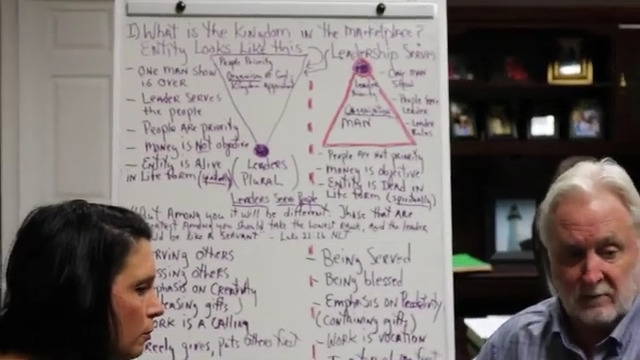 1) What is the Kingdom in the marketplace?
Entity Looks Like this
People Priority
Organism of God
Kingdom Approach
- One man show is over
- Leader serves the people
- People are priority
- Money is Not objective
- Entity is Alive
in Life form (
(Leaders
Plural)
Leaders Serve People
Leadership Serves
Leader
Priority
Organization
MAN
- One man
Show
- People serve
Leader
- Leader
Rules
- People are not priority
- Money is objective
- Entity is Dead in
Life form (spiritually)
"But Among you it will be different. Those that are
greatest Among you should take the lowest rank, and the leader
should be like a servant" - Luke 22:26 NLT
serving others
Blessing others
Emphasis on Creativity
(Releasing gifts)
Work is a calling
Freely gives, puts others first
- Being Served
- Being blessed
- Emphasis on Productivity
(Containing gifts)
- Work is vocation